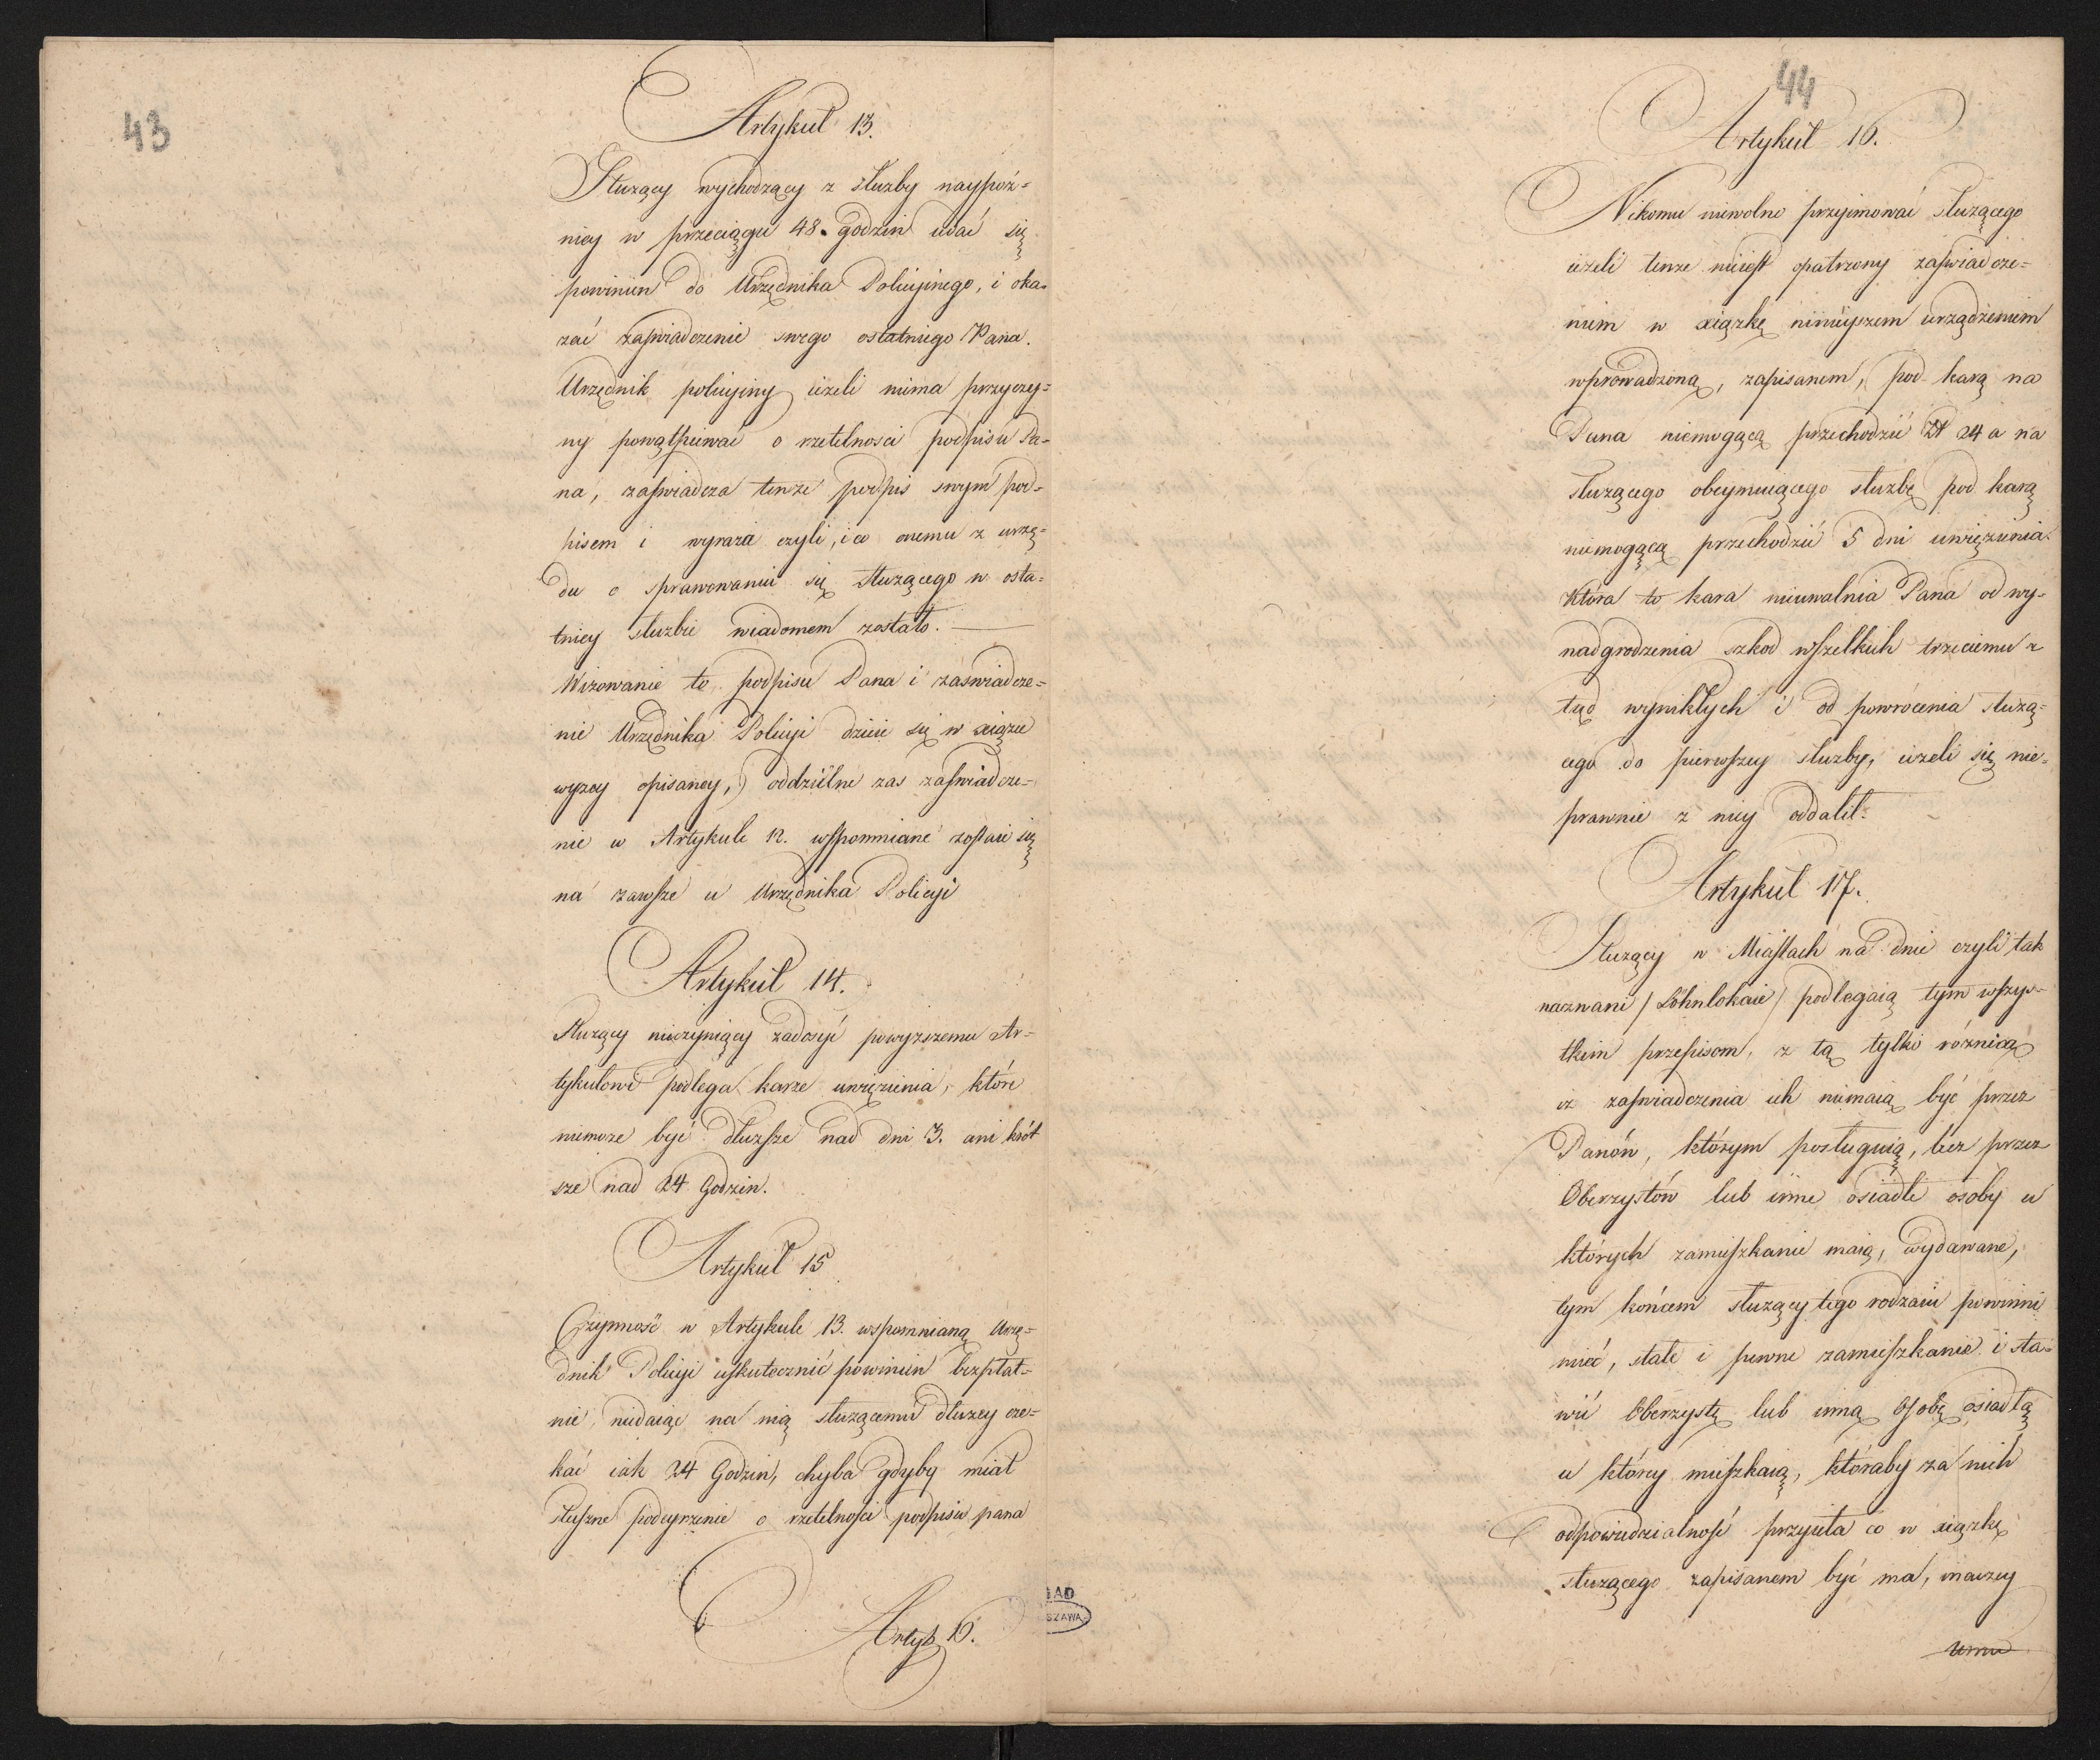 43
Artykuł 13.
Służący wychodzący z służby naypóź=
niey w przeciągu 48. godzin udać się
powinien do Urzędnika Policyinego, i oka=
zać zaświadczenie swego ostatniego Pana.
Urzędnik policyiny ieżeli niema przyczy=
ny powątpiewać o rzetelności podpisu Pa=
na, zaświadcza tenże podpis swym pod=
pisem i wyraża czyli, i co onemu z urzę=
du o sprawowaniu się służącego w osta=
tniey służbie wiadomem zostało. —
Wizowanie to podpisu Pana i zaświadcze=
nie Urzędnika Policyi dzieie się w xiążce
wyżey opisaney, oddzielne zaś zaświadcze=
nie w Artykule 12. wspomniane zostaie się
na zawsze u Urzędnika Policyi
Artykuł 14.
Służący nieczyniący zadosyć powyższemu Ar=
tykułowi podlega karze uwięzienia, które
niemoże być dłuższe nad dni 3. ani krót
sze nad 24 Godzin.
Artykuł 15
Czynność w Artykule 13. wspomnianą Urzę=
dnik Policyi uskutecznić powinien bezpłat=
nie, niedaiąc na nią służącemu dłużey cze=
kać iak 24 Godzin, chyba gdyby miał
słuszne podeyrzenie o rzetelności podpisu pana
Artyk 16.
44
Artykuł 16.
Nikomu niewolno przyimować służącego
ieżeli tenże nieiest opatrzony zaświadcze=
niem w xiążkę ninieyszem urządzeniem
wprowadzoną, zapisanem, pod karą na
Pana niemogącą przechodzić Zł 24 a na
służącego obeymuiącego służbę pod karą
niemogącą przechodzić 5 dni uwięzienia.
która to kara nieuwalnia Pana od wy=
nadgrodzenia szkod wszelkich trzeciemu z
tąd wynikłych i od powrócenia służą=
cego do pierwszey służby, ieżeli się nie=
prawnie z niey oddalił.
Artykuł 17.
Służący w Miastach na dnie czyli tak
nazwani / Löhnlokaie / podlegaią tym wszys=
tkim przepisom, z tą tylko różnicą
iż zaświadczenia ich niemaią być przez
Panów, którym posługuią, lecz przez
Oberzystów lub inne osiadłe osoby u
których zamieszkanie maią, wydawane,
tym końcem służący tego rodzaiu powinni
mieć, stałe i pewne zamieszkanie i sta=
wić Oberzystę lub inną Osobę osiadłą
u którey mieszkaią, któraby za nich
odpowiedzialność przyięła co w xiążkę
służącego zapisanem być ma, inaczey
IAD
SZAWA